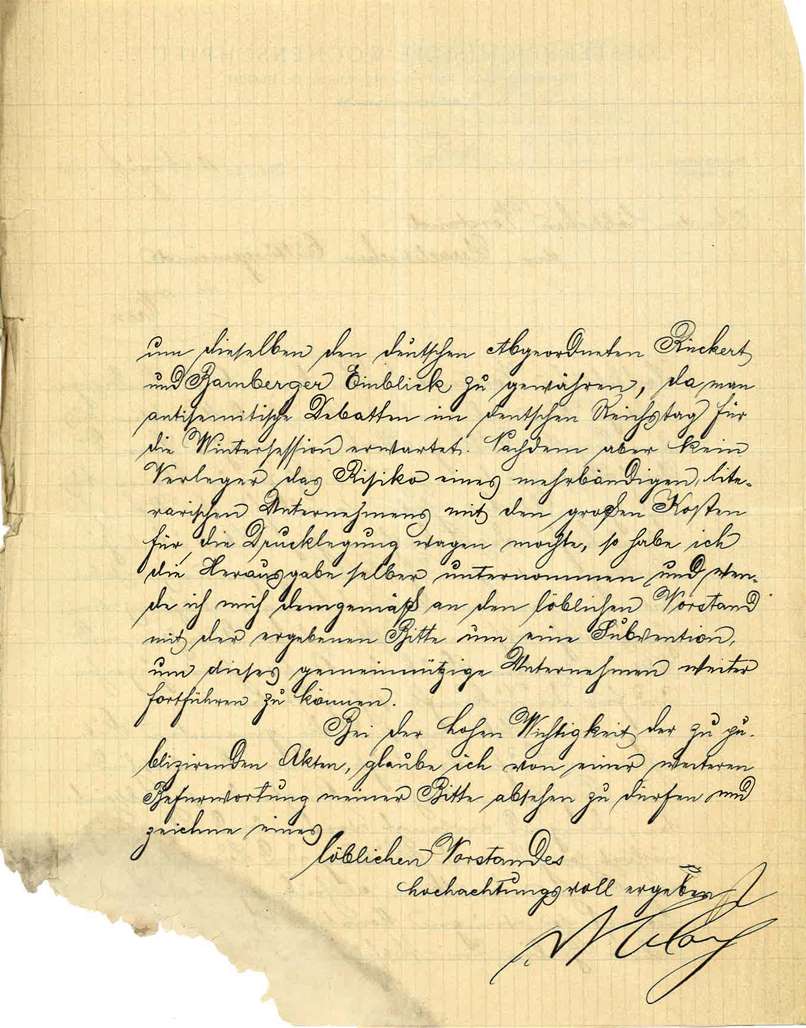 um dieselben den deutschen Abgeordneten Rickert
und Bamberger Einblick zu gewähren, da man
antisemitische Debatten im deutschen Reichstag für
die Wintersession erwartet. Nachdem aber kein
Verleger das Risiko eines mehrbändigen, lite-
rarischen Unternehmens mit den großen Kosten
für die Drucklegung wagen mochte, so habe ich
die Herausgabe selber unternommen und wen-
de ich mich demgemäß an den löblichen Vorstand
mit der ergebenen Bitte um eine Subvention,
um dieses gemeinnützige Unternehmen weiter
fortführen zu können.
Bei der hohen Wichtigkeit der zu pu-
blizirenden Akten, glaube ich von einer weiteren
Befürwortung meiner Bitte absehen zu dürfen und
zeichne eines
löblichen Vorstandes
hochachtungsvoll ergeben